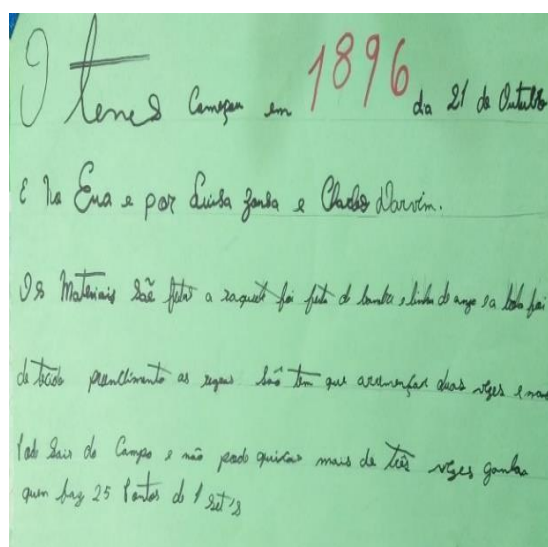 O tenes começou em 1896 dia 21 de Outubro
E na Eua e por Luisa zanba e Charles Darvin.
Os Materiais são feitos a raquete foi feita de bambu e linha de ange e a bola foi
de tecido preenchimento as regras são tem que arremençar duas vezes e nao
Pode Sair do Campo e não pode quicar mais de três vezes ganha
quen faz 25 Pontos de 1 set's